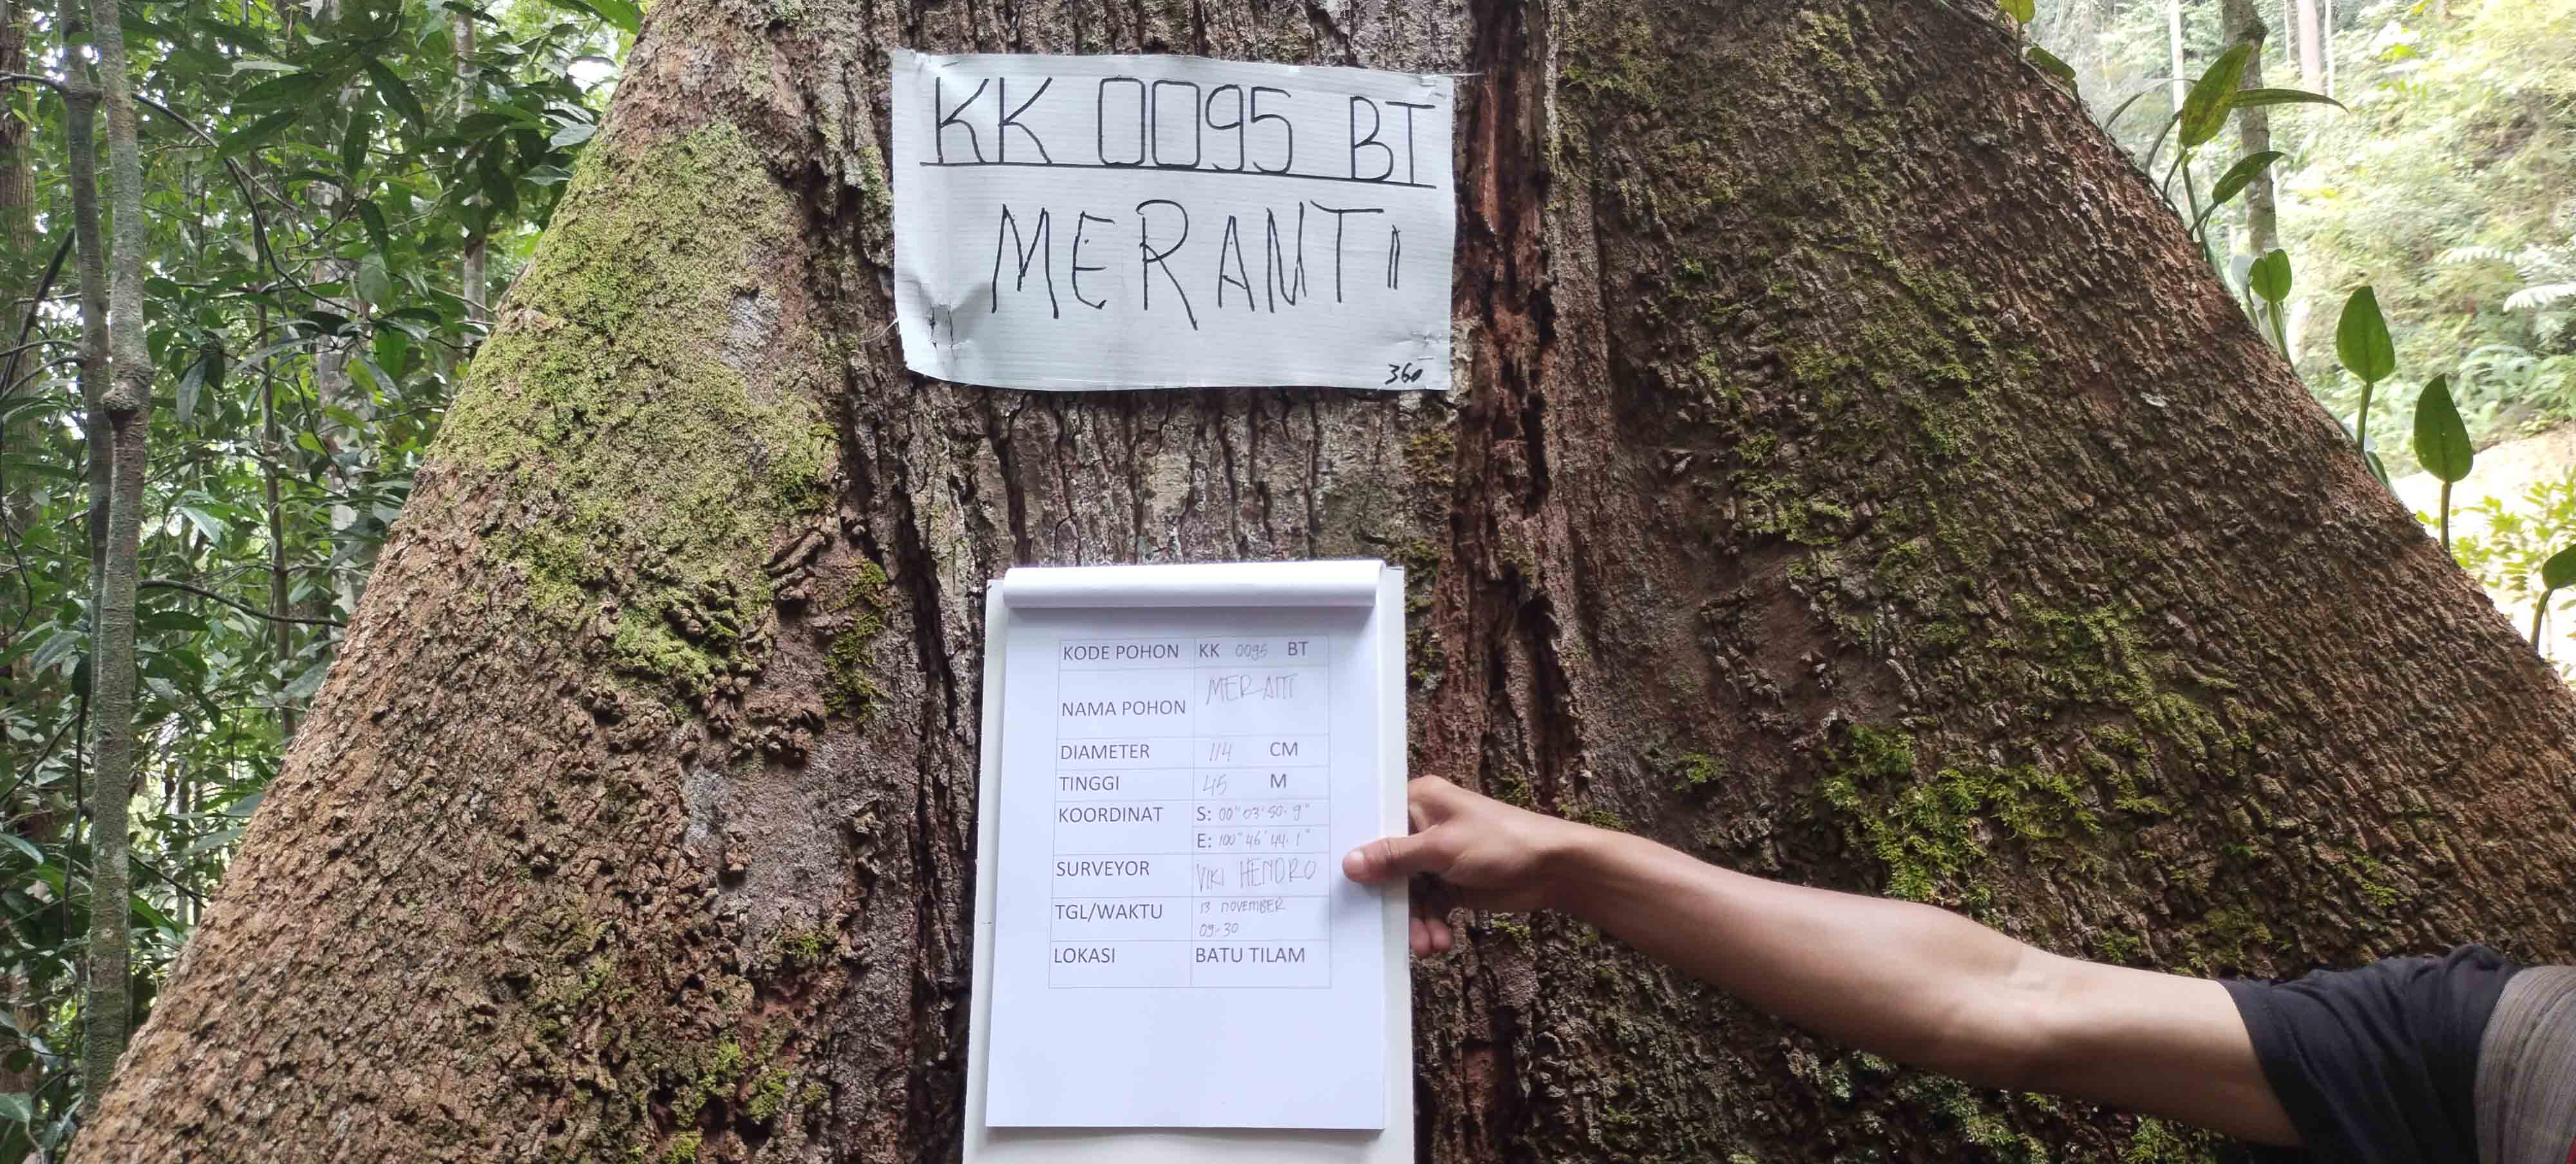 KK 0095 BT
MERANTI
360
KODE POHON KK 0095 BT
NAMA POHON MERANTI
DIAMETER 114 CM
TINGGI 45 M
KOORDINAT S: 00° 03' 50.9"
E: 100° 46' 44.1"
SURVEYOR VIKI HENDRO
TGL/WAKTU 13 NOVEMBER
09-30
LOKASI BATU TILAM